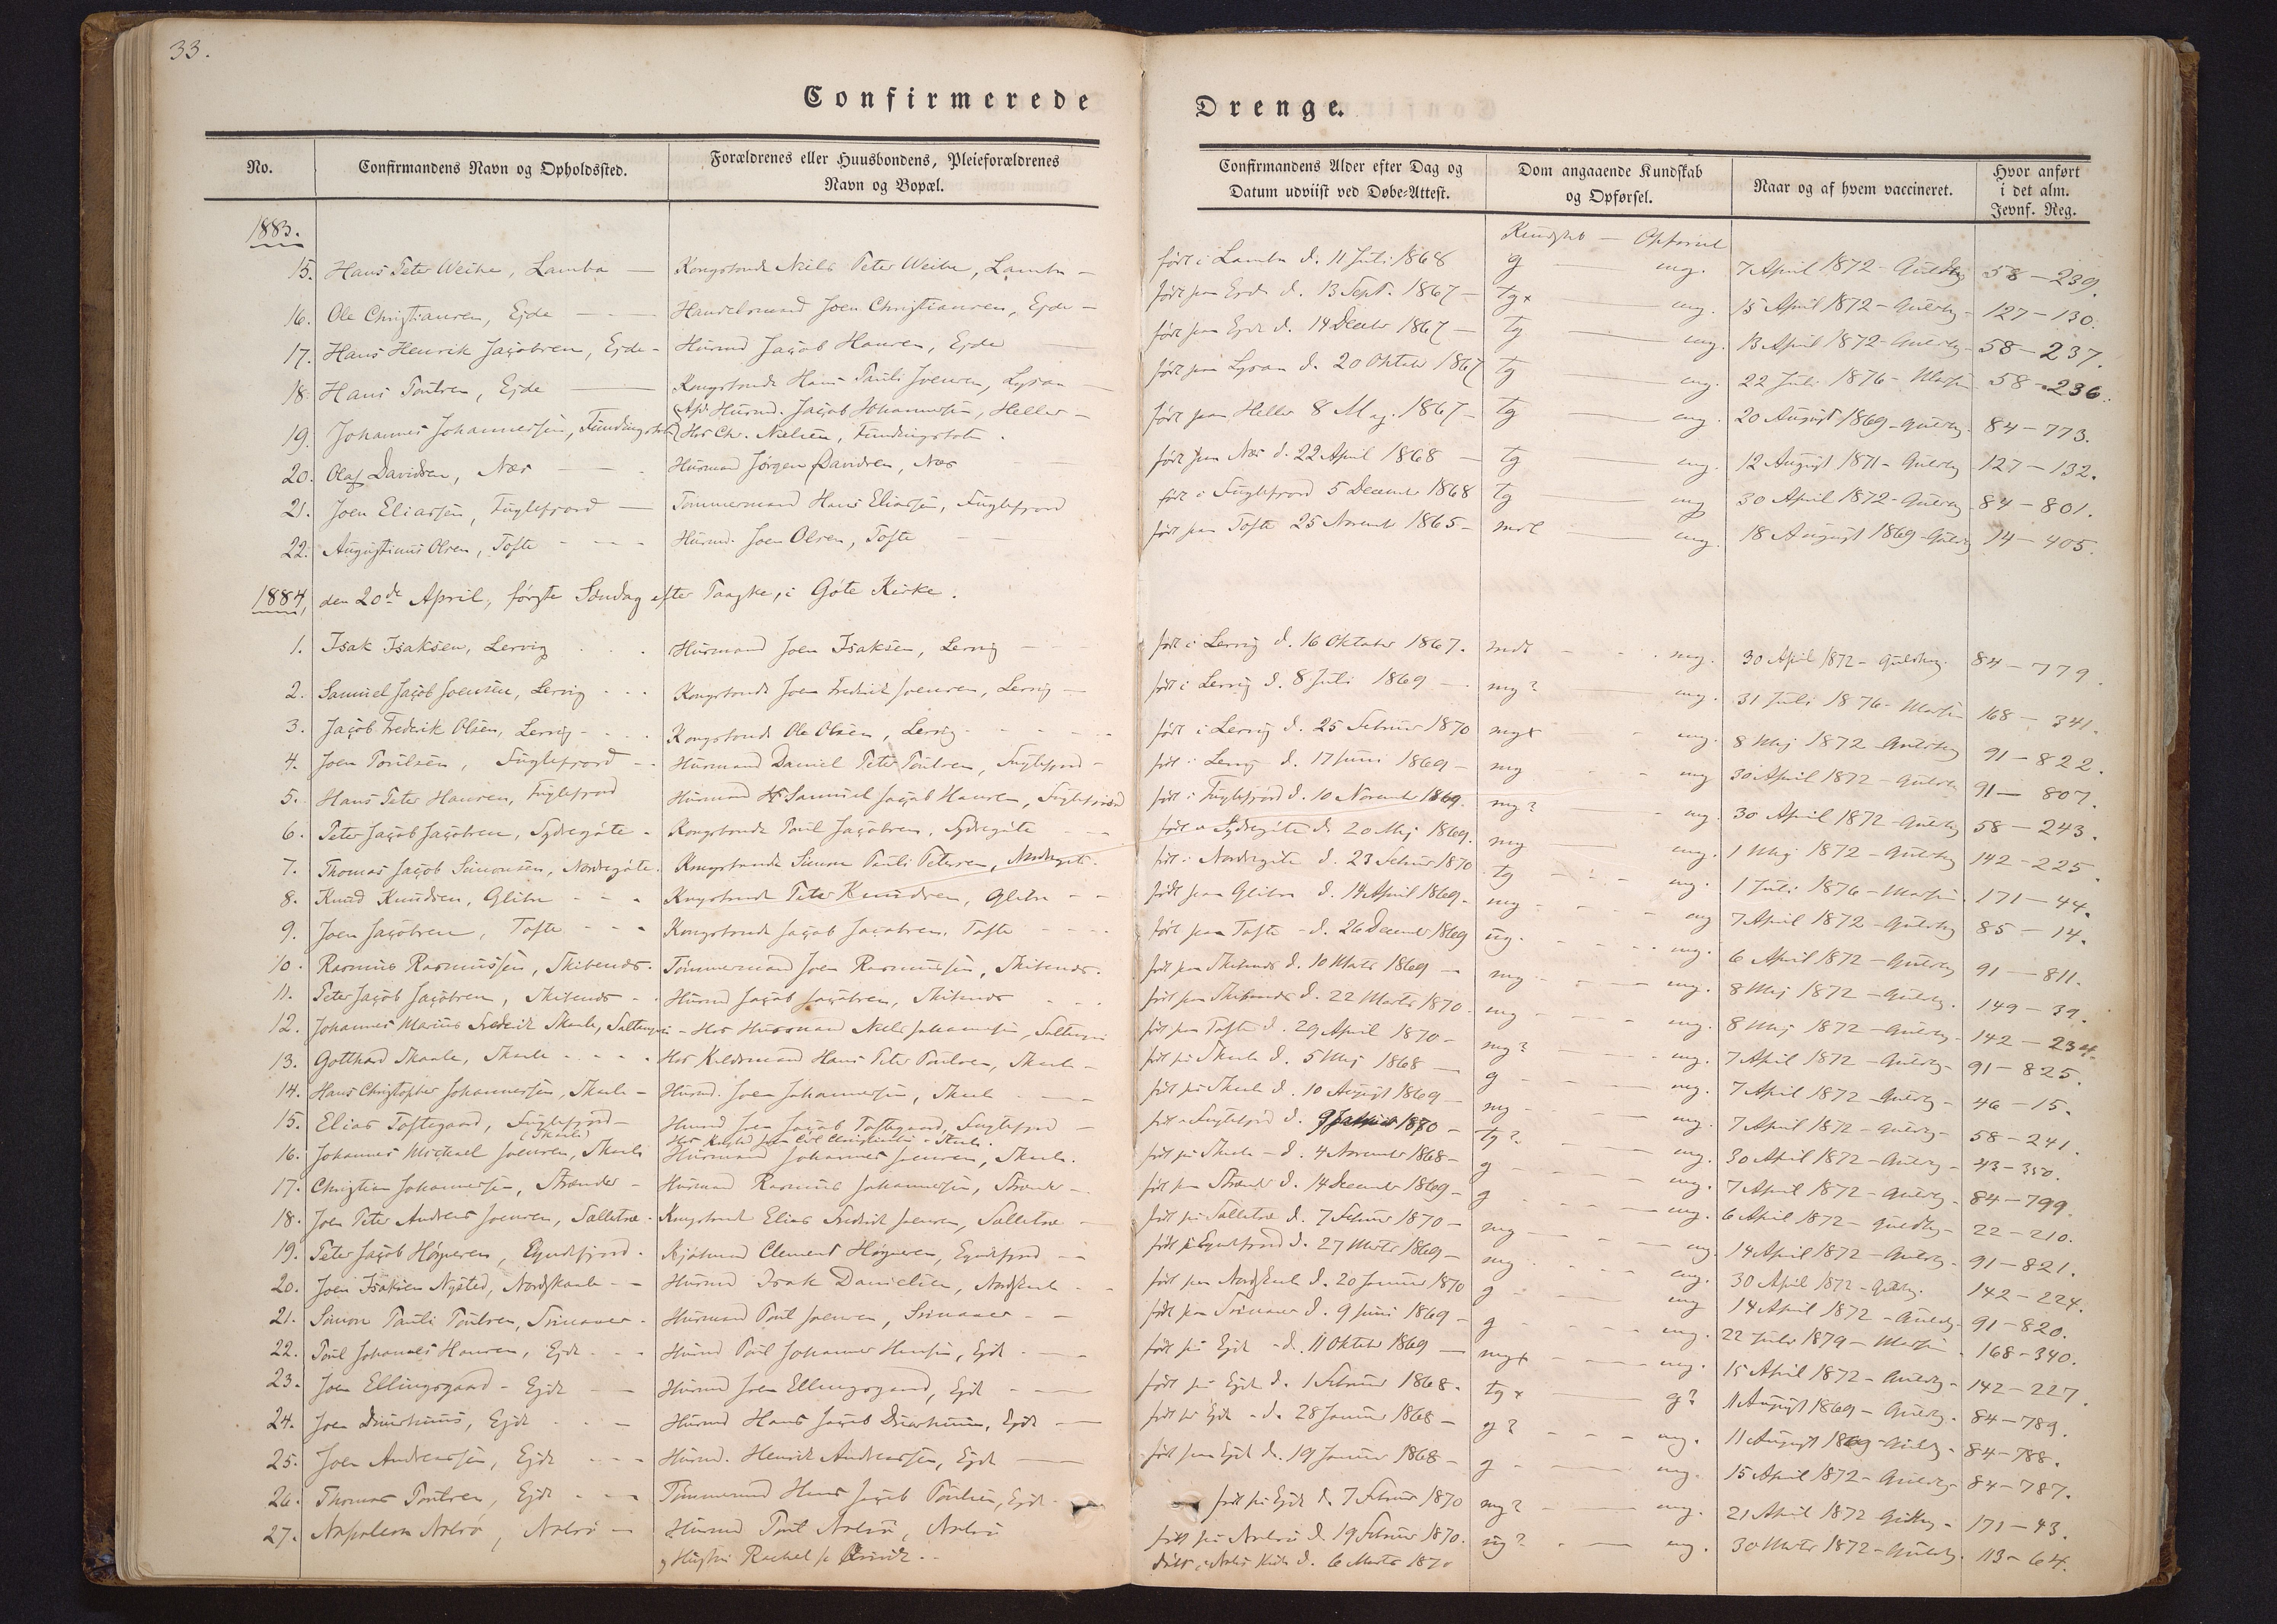 33.
Confirmerede Drenge.
No. Confirmandens Navn og Opholdssted. Forældrenes eller Huusbondens, Pleieforældrenes Navn og Bopæl. Confirmandens Alder efter Dag og Datum udviist ved Døbe-Attest. Dom angaaende Kundskab og Opførsel. Naar og af hvem vaccineret. Hvor anført i det alm. Jevnf. Reg.
1883.
Kundskab — Opførsel
15. Hans Peter Weihe, Lamba — Kongsbonde Niels Peter Weihe, Lamba — født i Lamba d. 11 Juli 1868 g — mg. 7 April 1872 - 58 — 239.
16. Ole Christiansen, Ejde — Handelsmand Joen Christiansen, Ejde — født paa d. 13 Sept. 1867 — tg+ — mg. 15 April 1872 - 127 — 130.
17. Hans Henrik Jacobsen, Ejde - Husmd Jacob Hansen, Ejde født paa Ejde d. 14 Decbr 1867 — tg — mg. 13 April 1872 - 58 — 237.
18. Hans Poulsen, Ejde — Kongsbonde Hans Pauli Joensen, født paa d. 20 Oktober 1867 tg — mg. 22 Juli 1876 - 58 - 236.
19. Johannes Johannessen, Husmd. Jacob Johannessen, Heller — Hos Chr. Nielsen, født paa Heller 8 Maj. 1867 — tg — mg. 20 August 1869 - 84 — 773.
20. Olaf Davidsen, Næs — Husmand Jørgen Davidsen, Næs født paa Næs d. 22 April 1868 — tg — mg. 12 August 1871 - 127 — 132.
21. Joen Eliassen, Fuglefjord — Tømmermand Hans Eliassen, Fuglefjord født i Fuglefjord 5 December 1868 tg — mg 30 April 1872 - 84 — 801.
22. Augustinus Olsen, Tofte - - - Husmd. Joen Olsen, Tofte født paa Tofte 25 November 1865 - mdl — mg. 18 August 1869 - 14 — 405.
1884, den 20de April, første Søndag efter Paaske, i Gøte Kirke.
1. Isak Isaksen, Lervig Husmand Joen Isaksen, Lervig født i Lervig d. 16 Oktober 1867. mdl mg. 30 April 1872 - 84 — 779.
2. Samuel Jacob Joensen, Lervig Kongsbonde Joen Frederik Joensen, Lervig — født i Lervig d. 8 Juli 1869 — mg? mg. 31 Juli 1876 - 168 — 341.
3. Jacob Frederik Olsen, Lervig - Kongsbonde Ole Olsen, Lervig født i Lervig d. 25 Februar 1870 mg+ mg. 8 Maj 1872 - 91 — 822.
4. Joen Poulsen, Fuglefjord - Husmand Daniel Peter Poulsen, Fuglefjord - født i Lervig d. 17 Juni 1869 — mg - mg 30 April 1872 - 91 — 807.
5. Hans Peter Hansen, Fuglefjord Husmand Samuel Jacob Hansen, Fuglefjord født i Fuglefjord d. 10 November 1869. mg? - mg. 30 April 1872 - 58 — 243.
6. Peter Jacob Jacobsen, Sydregøte - Kongsbonde Poul Jacobsen, Sydregøte født i Sydregøte d. 20 Maj 1869. mg — mg. 1 Maj 1872 - 142 - 225.
7. Thomas Jacob Simonsen, Nordregøte. Kongsbonde Simon Pauli Petersen, Nordregøte. født i Nordregøte d. 23 Februar 1870 tg - mg. 1 Juli 1876 - 171 — 44.
8. Knud Knudsen, Glibre - Kongsbonde Peter Knudsen, Glibre - født paa Glibre d. 14 April 1869 - mg - mg 7 April 1872 - 85 — 14.
9. Joen Jacobsen, Tofte - Kongsbonde Jacob Jacobsen, Tofte født paa Tofte - d. 26 December 1869 ug. - mg. 6 April 1872 - 91 — 811.
10. Rasmus Rasmussen, Tømmermand Joen Rasmussen, født paa d. 10 Marts 1869 — mg - mg. 8 Maj 1872 - 149 — 39.
11. Peter Jacob Jacobsen, Husmd Jacob Jacobsen, født paa d. 22 Marts 1870 mg - mg. 8 Maj 1872 - 142 — 234.
12. Johannes Marius Frederik Skaale, - Hos Husmand Niels Johannessen, født paa Tofte d. 29 April 1870 - mg? - mg. 7 April 1872 - 91 — 825.
13. Gotthard Skaale, Skaale - Hos Hans Peter Poulsen, Skaale - født paa Skaale d. 5 Maj 1868 — g - mg. 7 April 1872 - 46 — 15.
14. Hans Christopher Johannessen, Skaale - Husmd. Joen Johannessen, Skaale født paa Skaale d. 10 August 1869 — mg - mg. 7 April 1872 - 58 — 241.
15. Elias Toftegaard, Fuglefjord - Husmd Joen Jacob Toftegaard, Fuglefjord - født i Fuglefjord d. 9 1870 — tg? - mg. 30 April 1872 - 43 — 350.
16. Johannes Michael Joensen, Skaale Husmand Johannes Joensen, Skaale. født paa Skaale - d. 4 November 1868 - g - mg. 7 April 1872 - 84 — 799.
17. Christian Johannessen, Strænder - Husmand Rasmus Johannessen, Strænder - født paa Strænder d. 14 December 1869 - g - mg. 6 April 1872 - 22 — 210.
18. Joen Peter Andreas Joensen, Selletræ - Kongsbonde Elias Frederik Joensen, Selletræ født paa Selletræ d. 7 Februar 1870 - mg - mg. 14 April 1872 - 91 — 821.
19. Peter Jacob Høgnesen, Funddefjord. Clement Høgnesen, født d. 27 Marts 1869 — mg - mg. 30 April 1872 - 142 — 224.
20. Joen Isaksen Nysted, Nordskaale - Husmd Isak Danielsen, Nordskaale - født paa Nordskaale d. 20 Januar 1870 g - mg 14 April 1872 - 91 — 820.
21. Simon Pauli Poulsen, Svinaaer - Husmand Poul Joensen, Svinaaer - født paa Svinaaer d. 9 Juni 1869 - g - mg. 22 1879 - 168 - 340.
22. Poul Johannes Hansen, Ejde - Husmd Poul Johannes Hansen, Ejde - født paa Ejde - d. 11 Oktober 1869 — mg+ - mg. 15 April 1872 - 142 — 227.
23. Joen Ellingsgaard - Ejde - Husmd Joen Ellingsgaard, Ejde - født paa Ejde d. 1 Februar 1868. tg+ — g? 11 August 1869 - 84 — 789.
24. Joen Ejde - Husmd Hans Jacob Ejde — født paa Ejde - d. 28 Januar 1868 — g? - mg. 11 August 1869 - 84 — 788.
25. Joen Andreassen, Ejde - Husmd. Henrik Andreassen, Ejde — født paa Ejde d. 19 Januar 1868 - g - mg. 15 April 1872 - 84 — 787.
26. Thomas Poulsen, Ejde - Tømmermand Hans Jacob Poulsen, Ejde - født paa Ejde d. 7 Februar 1870 mg? - mg. 21 April 1872 - 171 — 43.
27. Napoleon Nolsø, Nolsø - Husmd Poul Nolsø, Nolsø født paa Nolsø d. 19 Februar 1870. ug? - mg. 30 Marts 1872 - 113 - 64.
Hustru Rachel f. døbt i Nolsø Kirke d. 6 Marts 1870